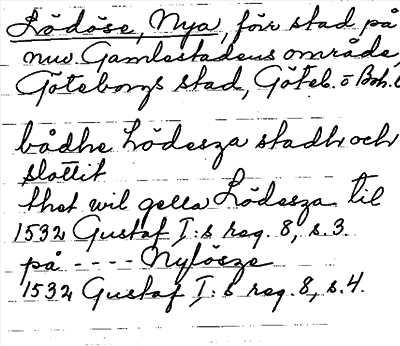 Lödöse, Nya, förr stad på
nuv. Gamlestadens område,
Göteborgs stad, Göteb. o Boh. l
bådhe Lödesza stadh och
slottit
thet wil gella Lödesza til
1532 Gustaf I:s reg. 8, s. 3
på ---- Nylösze
1532 Gustaf I:s reg. 8, s. 4.